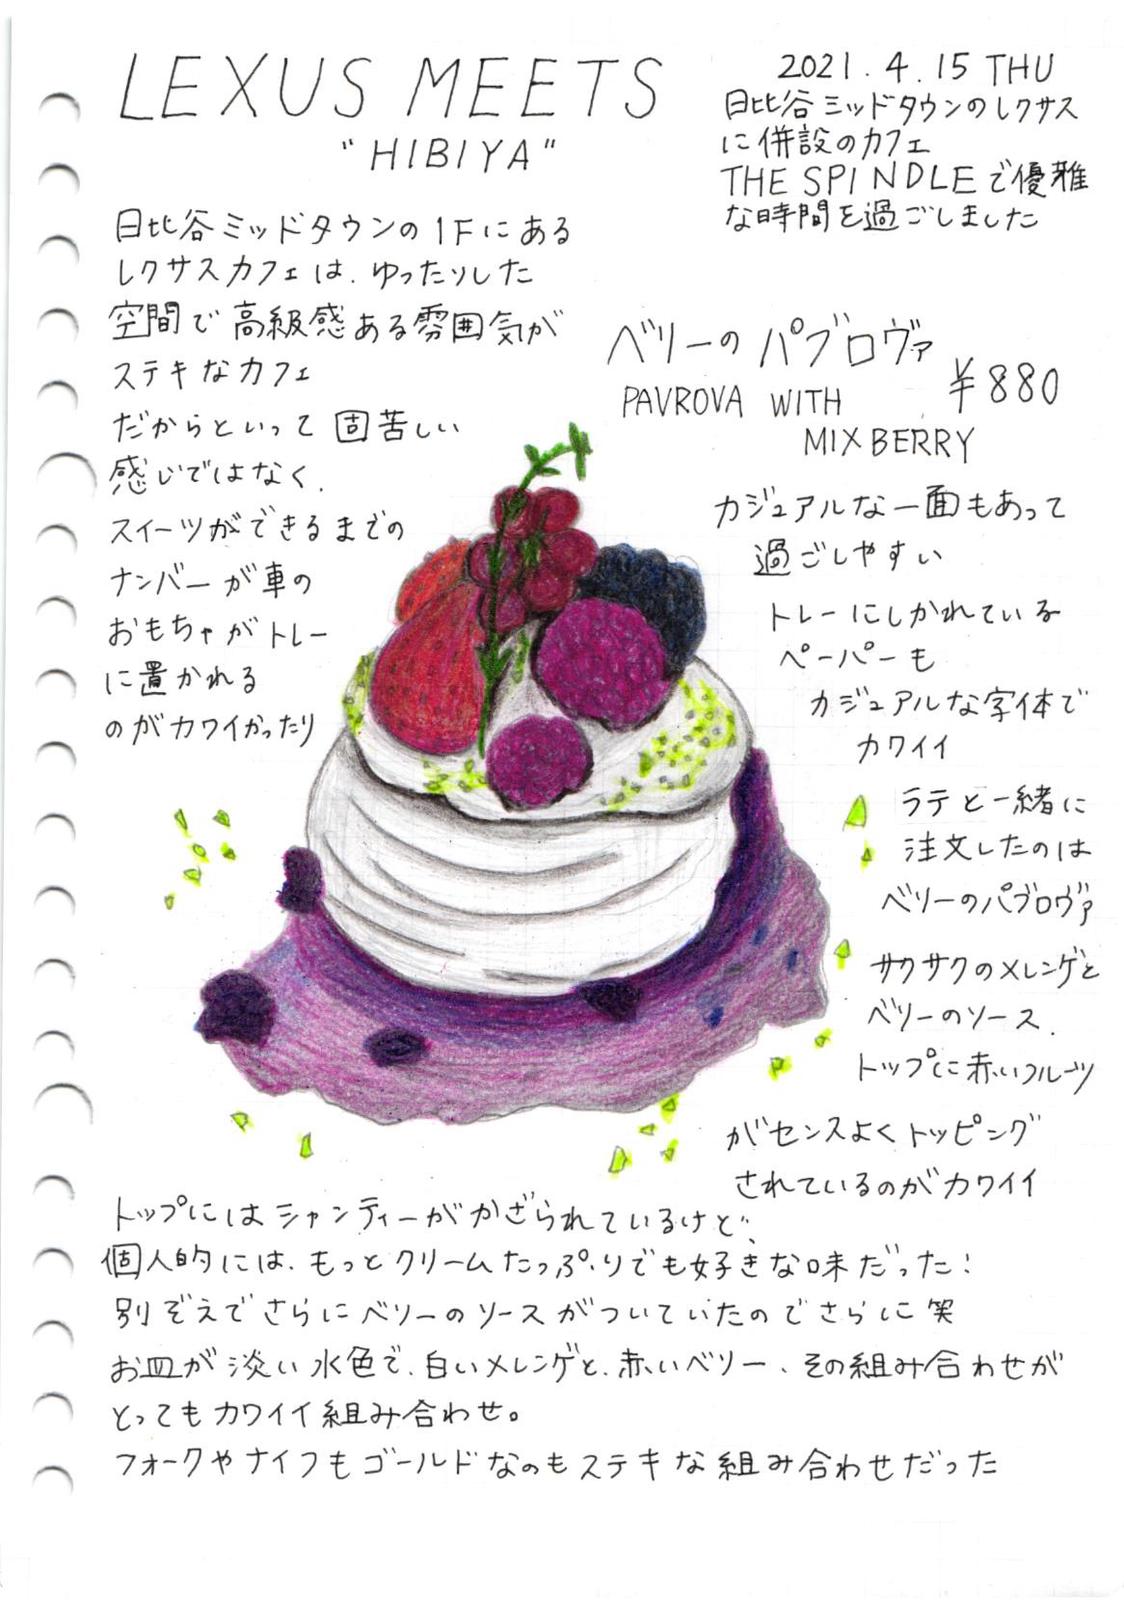 LEXUS MEETS
"HIBIYA"
2021.4.15 THU
日比谷ミッドタウンのレクサス
に併設のカフェ
THE SPINDLEで優雅
な時間を過ごしました
日比谷ミッドタウンの1Fにある
レクサスカフェは、ゆったりした
空間で高級感ある雰囲気が
ステキなカフェ
だからといって固苦しい
感じではなく、
スイーツができるまでの
ナンバーが車の
おもちゃがトレー
に置かれる
のがカワイかったり
ベリーのパブロヴァ
¥880
PAVROVA WITH
MIXBERRY
カジュアルな一面もあって
過ごしやすい
トレーにしかれている
ペーパーも
カジュアルな字体で
カワイイ
ラテと一緒に
注文したのは
ベリーのパブロヴァ
サクサクのメレンゲと
ベリーのソース、
トップに赤いフルーツ
がセンスよくトッピング
されているのがカワイイ
トップにはシャンティーがかざられているけど、
個人的には、もっとクリームたっぷりでも好きな味だった!
別ぞえでさらにベリーのソースがついていたのでさらに笑
お皿が淡い水色で、白いメレンゲと、赤いベリー、その組み合わせが
とってもカワイイ組み合わせ。
フォークやナイフもゴールドなのもステキな組み合わせだった